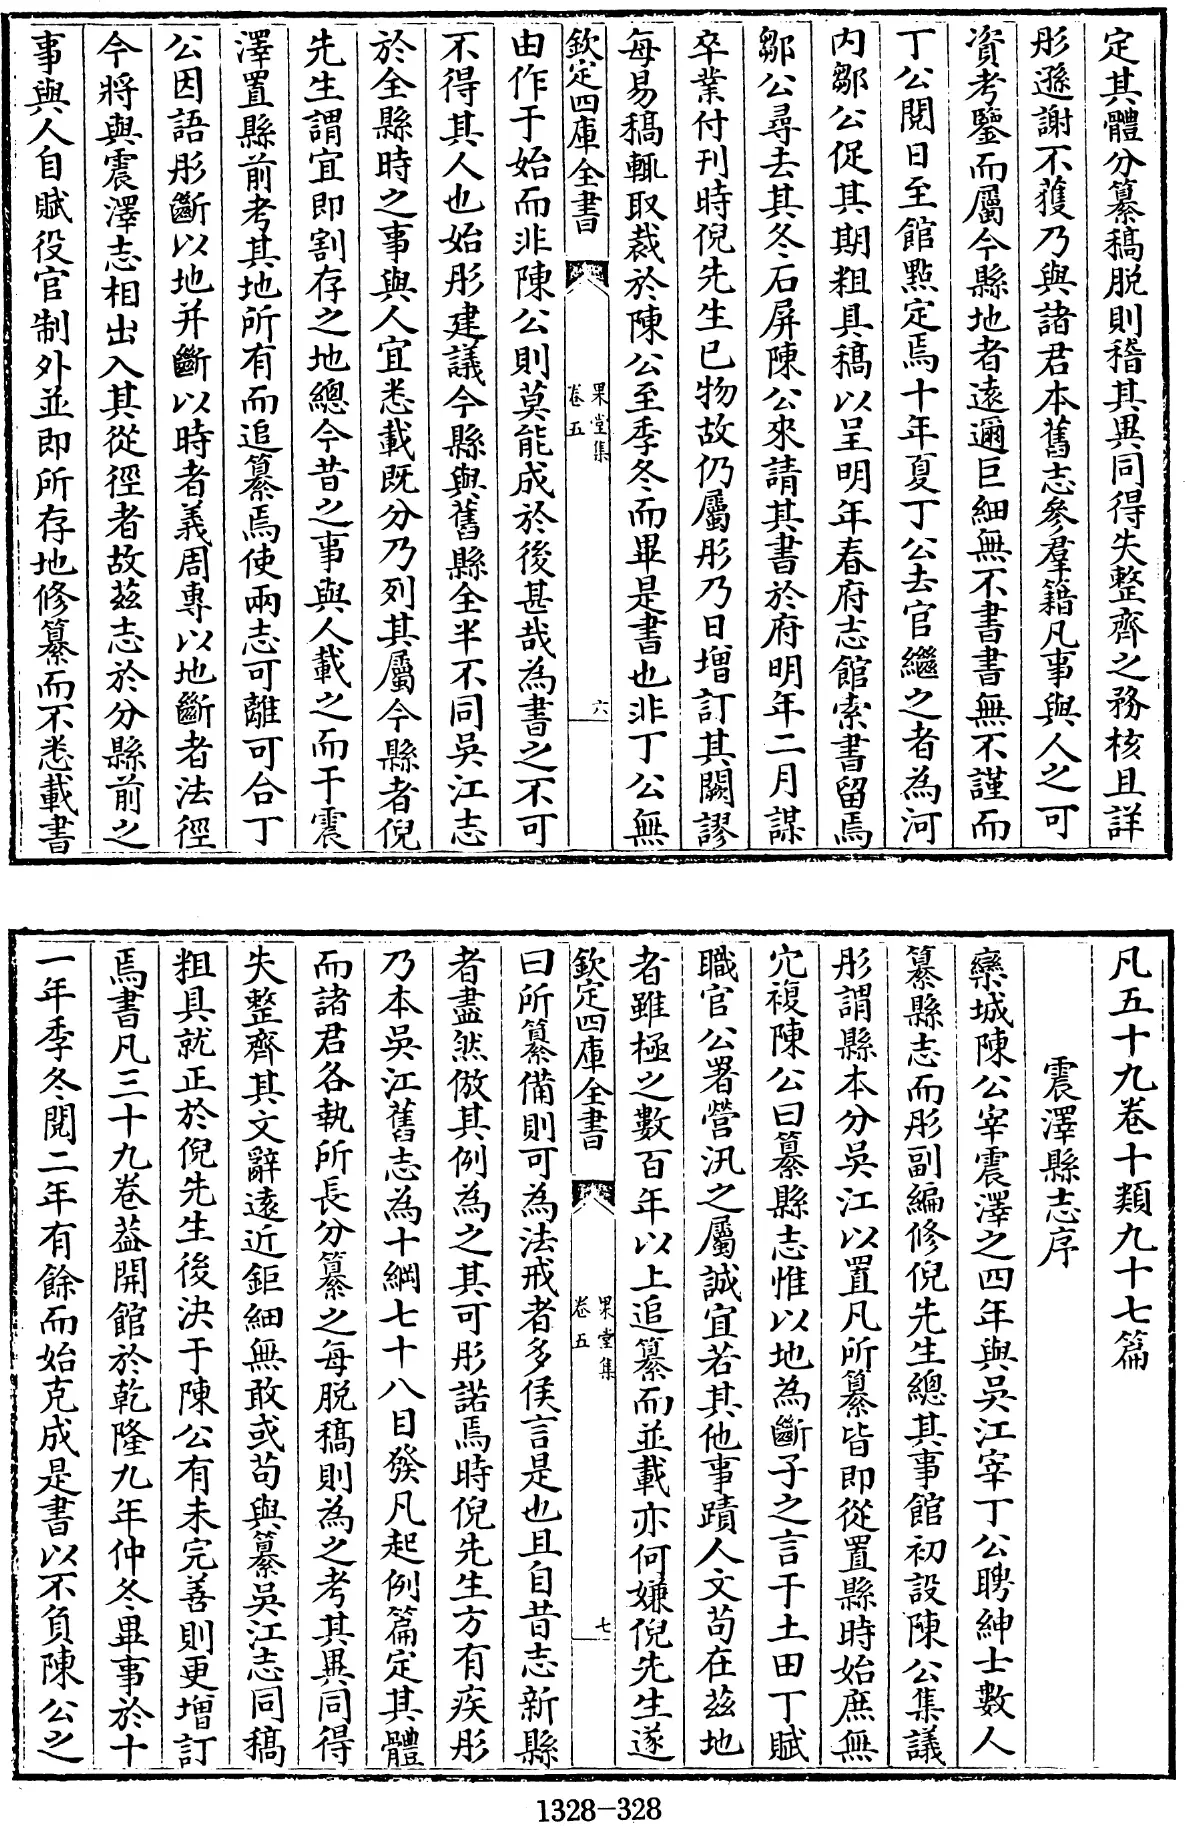 定其體分纂稿脱則稽其異同得失整齊之務核且詳
彤遜謝不獲乃與諸君本舊志參羣籍凡事與人之可
資考鑒而屬今縣地者遠邇巨細無不書書無不謹而
丁公閲日至館㸃定焉十年夏丁公去官繼之者為河
内鄒公促其期粗具稿以呈明年春府志館索書留焉
鄒公尋去其冬石屏陳公來請其書於府明年二月謀
卒業付刊時倪先生已物故仍屬彤乃日增訂其闕謬
每易稿輒取裁於陳公至季冬而畢是書也非丁公無
欽定四庫全書
果堂集
卷五
六
由作于始而非陳公則莫能成於後甚哉為書之不可
不得其人也始彤建議今縣與舊縣全半不同吳江志
於全縣時之事與人宜悉載既分乃列其屬今縣者倪
先生謂宜即割存之地總今昔之事與人載之而于震
澤置縣前考其地所有而追纂焉使兩志可離可合丁
公因語彤斷以地并斷以時者義周專以地斷者法徑
今將與震澤志相出入其從徑者故茲志於分縣前之
事與人自賦役官制外並即所存地修纂而不悉載書
凡五十九卷十類九十七篇
震澤縣志序
欒城陳公宰震澤之四年與吳江宰丁公聘紳士數人
纂縣志而彤副編修倪先生總其事館初設陳公集議
彤謂縣本分吳江以置凡所纂皆即從置縣時始庶無
冗複陳公曰纂縣志惟以地為斷子之言于土田丁賦
職官公署營汛之屬誠宜若其他事蹟人文苟在茲地
者雖極之數百年以上追纂而並載亦何嫌倪先生遂
欽定四庫全書
果堂集
卷五
七
曰所纂備則可為法戒者多侯言是也且自昔志新縣
者盡然倣其例為之其可彤諾焉時倪先生方有疾彤
乃本吳江舊志為十綱七十八目發凡起例篇定其體
而諸君各執所長分纂之每脱稿則為之考其異同得
失整齊其文辭遠近鉅細無敢或苟與纂吳江志同稿
粗具就正於倪先生後決于陳公有未完善則更增訂
焉書凡三十九卷葢開館於乾隆九年仲冬畢事於十
一年季冬閲二年有餘而始克成是書以不負陳公之
1328-328